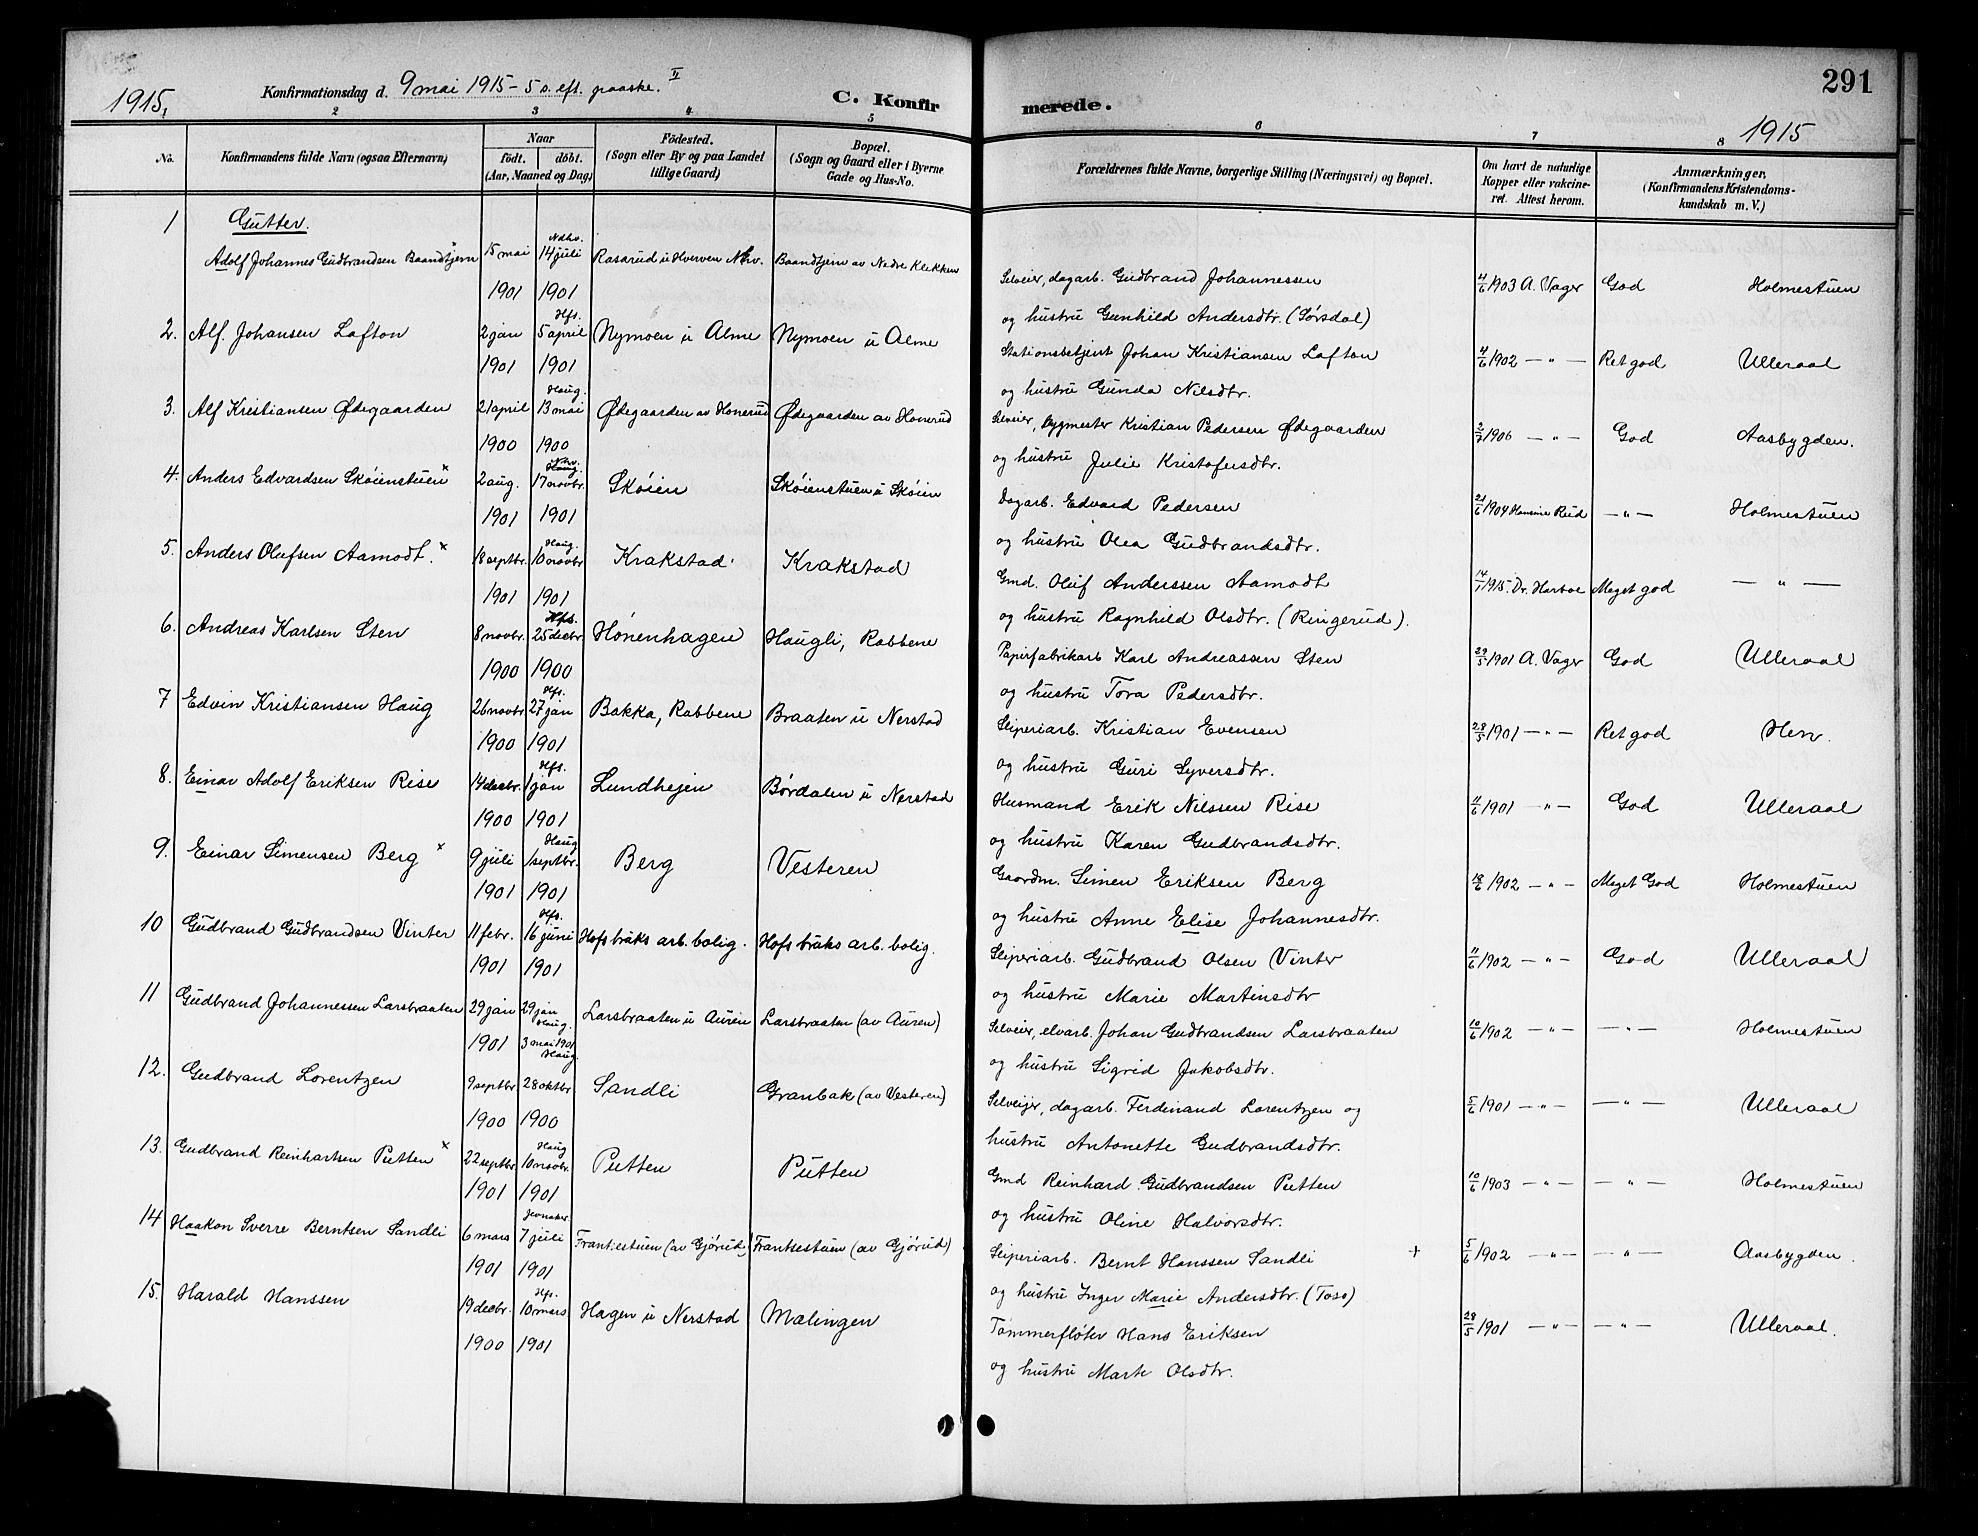 291
1915,
Konfirmationsdag d. 9 mai 1915 - 5 s. eft. paaske. II
C. Konfirmerede.
1915
2 3 4 5 6 7 8
No.
Konfirmandens fulde Navn (ogsaa Efternavn)
Naar
födt. döbt.
(Aar, Maaned og Dag)
Födested.
(Sogn eller By og paa Landet
tillige Gaard)
Bopæl.
(Sogn og Gaard eller i Byerne
Gade og Hus-No.
Forældrenes fulde Navne, borgerlige Stilling (Næringsvei) og Bopæl.
Om havt de naturlige
Kopper eller vakcine-
ret. Attest herom.
Anmærkninger,
(Konfirmandens Kristendoms-
kundskab m. V.)
Gutter.
1 Adolf Johannes Gudbrandsen Baandtjern x 15 mai 1901 Ndhv. 14 juli 1901 Rasarud u Hverven Nhv. Baandtjern av Nedre Klekken
Selveier, dagarb. Gudbrand Johannessen 4/6 1903 A. Vager God Holmestuen
og hustru Gunhild Andersdtr. (Sørsdal)
2. Alf. Johansen Lafton 2 jan 1901 Hfs. 5 april 1901 Nymoen u Alme Nymoen u Alme
Stationsbetjent Johan Kristiansen Lafton 4/6 1902 — " — Ret god Ulleraal
og hustru Gunda Nilsdtr.
3. Alf Kristiansen Ødegaarden 21 april 1900 Haug. 13 mai 1900 Ødegaarden av Honerud Ødegaarden av Honerud
Selveier, bygmester Kristian Pedersen Ødegaarden 2/7 1906 — " — God Aasbygden.
og hustru Julie Kristofersdtr.
4. Anders Edvardsen Skøienstuen x 2 aug. 1901 Nhv. Haug. 17 novbr. 1901 Skøien Skøienstuen u Skøien
Dagarb. Edvard Pedersen 21/6 1904 Hansine Rud — " — Holmestuen
og hustru Olea Gudbrandsdtr.
5. Anders Olufsen Aamodt. x 18 septbr. 1901 Haug. 10 novbr 1901 Krakstad Krakstad
Gmd. Oluf Anderssen Aamodt 14/1 1915. Dr. Harboe Meget god — " —
og hustru Ragnhild Olsdtr. (Ringerud).
6. Andreas Karlsen Sten 8 novbr. 1900 Hfs. 25 decbr 1900 Hønenhagen Haugli, Rabbene
Papirfabrikarb Karl Andreassen Sten 29/5 1901 A. Vager God Ulleraal
og hustru Tora Pedersdtr.
7 Edvin Kristiansen Haug 26 novbr 1900 Hfs. 27 jan 1901 Bakka, Rabbene Braaten u Nerstad
Sliperiarb. Kristian Evensen 28/5 1901 — " — Ret god Hen.
og hustru Guri Syversdtr.
8. Einar Adolf Eriksen Rise 14 decbr. 1900 Hfs. 1 jan 1901 Lundhejen Børdalen u Nerstad
Husmand Erik Nilssen Rise 11/6 1901 " — God Ulleraal
og hustru Karen Gudbrandsdtr.
9. Einar Simensen Berg x 9 juli 1901 Haug 1 septbr. 1901 Berg Vesteren
Gaardm. Simen Eriksen Berg 18/6 1902 - " - Meget God Holmestuen
og hustru Anne Elise Johannesdtr.
10 Gudbrand Gudbrandsen Vinter 11 febr. 1901 Hfs. 16 juni 1901 Hofsbruks arb. bolig. Hofsbruks arb. bolig.
Sliperiarb. Gudbrand Olsen Vinter 11/6 1902 — " — God Ulleraal
og hustru Marie Martinsdtr
11 Gudbrand Johannessen Larsbraaten 29 jan 1901 29 jan Haug. 3 mai 1901 Larsbraaten u Auren Larsbraaten (av Auren)
Selveier, elvarb. Johan Gudbrandsen Larsbraaten 10/6 1902 — " — — " — Holmestuen
og hustru Sigrid Jakobsdtr.
12. Gudbrand Lorentzen 9 septbr 1900 Haug. 28 oktbr 1900 Sandli Granbak (av Vesteren)
Selveijer, dagarb. Ferdinand Lorentzen og 5/6 1901 — " — — " — Ulleraal
hustru Antonette Gudbrandsdtr.
13. Gudbrand Reinhartsen Putten x 22 septbr 1901 Haug 10 novbr. 1901 Putten Putten
Gmd Reinhard Gudbrandsen Putten 10/6 1903 — " — — " — Holmestuen
og hustru Oline Halvorsdtr.
14 Haakon Sverre Berntsen Sandli 6 mars 1901 Jevnaker 7 juli 1901 Frantsestuen (av Gjørud) Frantsestuen (av Gjørud)
Sliperiarb. Bernt Hanssen Sandli + 5/6 1902 — " — — " — Aasbygden.
og hustru Inger Marie Andersdtr. (Toso)
15. Harald Hanssen 19 decbr. 1900 Hfs. 10 mars 1901 Hagen u Nerstad Malingen
Tømmerfløter Hans Eriksen 28/5 1901 — " — — " — Ulleraal.
og hustru Marte Olsdtr.